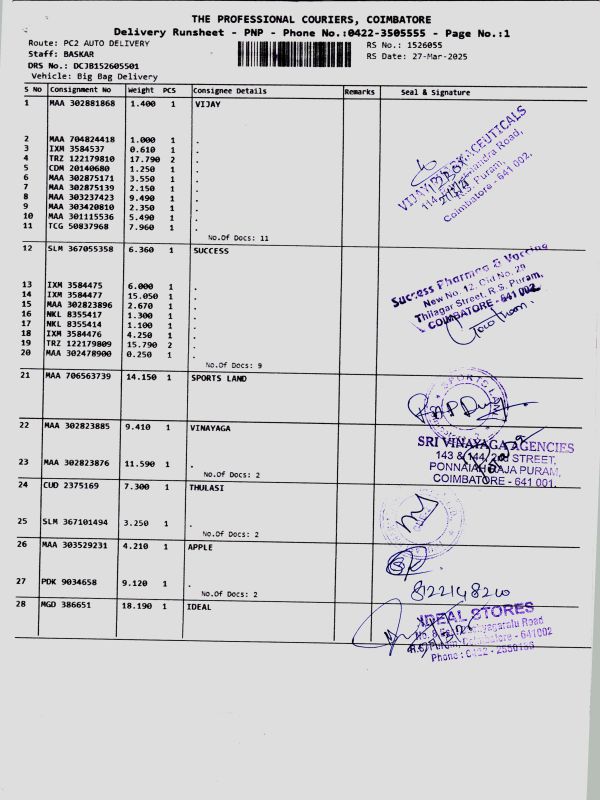 THE PROFESSIONAL COURIERS, COIMBATORE
Delivery Runsheet - PNP - Phone No.:0422-3505555 - Page No.:1
Route: PC2 AUTO DELIVERY RS No.: 1526055
Staff: BASKAR RS Date: 27-Mar-2025
DRS No.: DCJB152605501
Vehicle: Big Bag Delivery
S No Consignment No Weight PCS Consignee Details Remarks Seal & Signature
1 MAA 302881868 1.400 1 VIJAY
2 MAA 704824418 1.000 1 .
3 IXM 3584537 0.610 1 .
4 TRZ 122179810 17.790 2 .
5 CDM 20140680 1.250 1 .
6 MAA 302875171 3.550 1 .
7 MAA 302875139 2.150 1 .
8 MAA 303237423 9.490 1 .
9 MAA 303420810 2.350 1 .
10 MAA 301115536 5.490 1 .
11 TCG 50837968 7.960 1 .
No.Of Docs: 11
VIJAY
114,
Road,
R.S. Puram,
Coimbatore - 641 002.
12 SLM 367055358 6.360 1 SUCCESS
13 IXM 3584475 6.000 1 .
14 IXM 3584477 15.050 1 .
15 MAA 302823896 2.670 1 .
16 NKL 8355417 1.300 1 .
17 NKL 8355414 1.100 1 .
18 IXM 3584476 4.250 1 .
19 TRZ 122179809 15.790 2 .
20 MAA 302478900 0.250 1 .
No.Of Docs: 9
Success Pharmaa & Vaccine
New No. 12, Old No. 29
Thilagar Street, R.S. Puram,
COIMBATORE - 641 002.
21 MAA 706563739 14.150 1 SPORTS LAND
SPORTS LAND
22 MAA 302823885 9.410 1 VINAYAGA
23 MAA 302823876 11.590 1 .
No.Of Docs: 2
SRI VINAYAGA AGENCIES
143 & 144, 2nd STREET,
PONNAIAH RAJA PURAM,
COIMBATORE - 641 001.
24 CUD 2375169 7.300 1 THULASI
25 SLM 367101494 3.250 1 .
No.Of Docs: 2
26 MAA 303529231 4.210 1 APPLE
27 PDK 9034658 9.120 1 .
No.Of Docs: 2
28 MGD 386651 18.190 1 IDEAL
IDEAL STORES
Road
R.S. Puram, Coimbatore - 641002
Phone : 0422 -